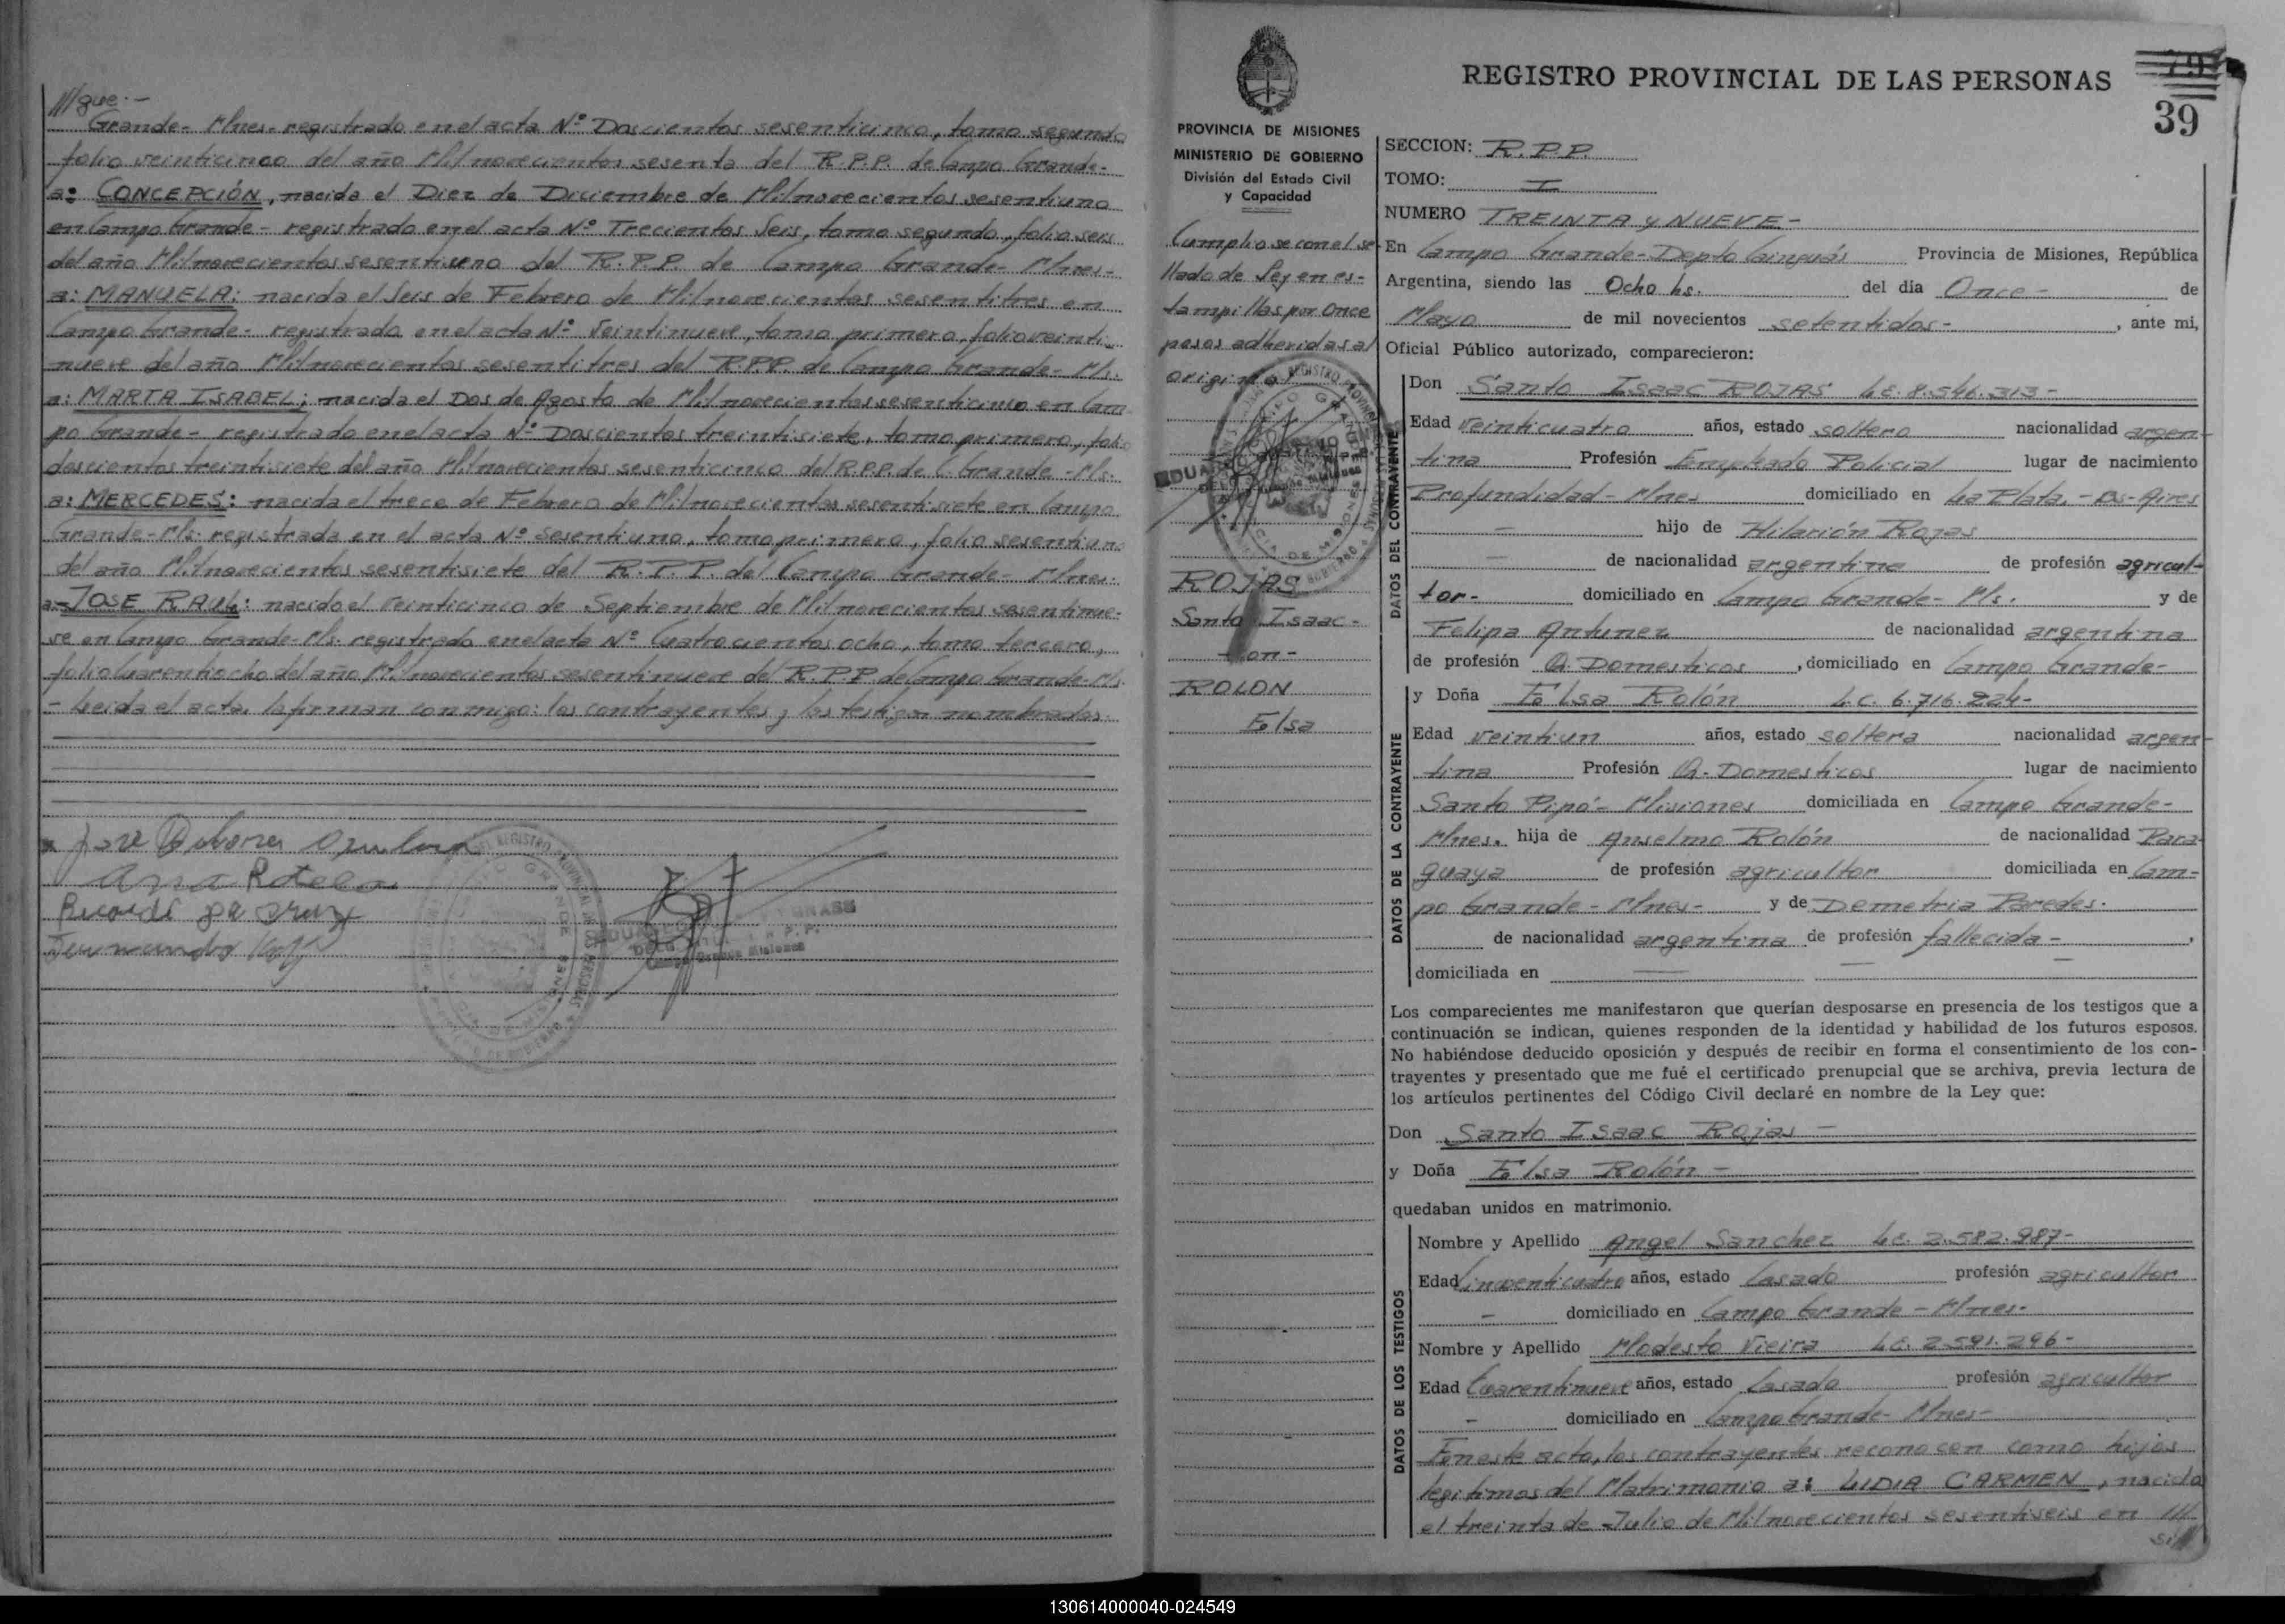 ///gue.-
Grande- Mnes- registrado en el acta Nº Doscientos sesenticinco, tomo segundo
folio veinticinco del año Milnovecientos sesenta del R.P.P. de Campo Grande-
a: CONCEPCIÓN, nacida el Diez de Diciembre de Milnovecientos sesentiuno
en Campo Grande- registrado en el acta Nº Trecientos Seis, tomo segundo, folio seis
del año Milnovecientos sesentiuno del R.P.P. de Campo Grande- Mnes-
a: MANUELA: nacida el Seis de Febrero de Milnovecientos sesentitres en
Campo Grande- registrado en el acta Nº Veintinueve, tomo primero, folio veinti-
nueve del año Milnovecientos sesentitres del R.P.P. de Campo Grande- Ms.
a: MARTA ISABEL; nacida el Dos de Agosto de Milnovecientos sesenticinco en Cam
po Grande- registrado en el acta Nº Doscientos treintisiete, tomo primero, folio
doscientos treintisiete del año Milnovecientos sesenticinco del R.P.P. de C. Grande -Ms.
a: MERCEDES: nacida el trece de Febrero de Milnovecientos sesentisiete en Campo
Grande-Ms. registrada en el acta Nº sesentiuno, tomo primero, folio sesentiuno
del año Milnovecientos sesentisiete del R.P.P. del Campo Grande- Mnes.
a- JOSE RAUL: nacido el veinticinco de Septiembre de Milnovecientos sesentinue-
ve en Campo Grande-Ms. registrado en el acta Nº Cuatrocientos ocho, tomo tercero,
folio Cuarentiocho del año Milnovecientos sesentinueve del R.P.P. de Campo Grande-Ms
- Leida el acta, la firman conmigo: los contrayentes y los testigos nombrados.
Ana Rotela
REGISTRO PROVINCIAL DE LAS PERSONAS
39
PROVINCIA DE MISIONES
MINISTERIO DE GOBIERNO
División del Estado Civil
y Capacidad
Cumpliose con el se-
llado de Ley en es-
tampillas por Once
pesos adheridas al
original
ROJAS
Santo Isaac-
-con-
ROLON
Elsa
SECCION: R.P.P.
TOMO: I
NUMERO TREINTA y NUEVE-
En Campo Grande-Depto Cainguás Provincia de Misiones, República
Argentina, siendo las Ocho hs. del día Once- de
Mayo de mil novecientos setentidos- , ante mi,
Oficial Público autorizado, comparecieron:
DATOS DEL CONTRAYENTE
Don Santo Isaac ROJAS L.E. 8.546.313-
Edad Veinticuatro años, estado soltero nacionalidad argen-
tina Profesión Empleado Policial lugar de nacimiento
Profundidad- Mnes domiciliado en La Plata.-Bs-Aires
- hijo de Hilarión Rojas
- de nacionalidad argentina de profesión agricul-
tor- domiciliado en Campo Grande- Ms. y de
Felipa Antunez de nacionalidad argentina
de profesión Q. Domesticos , domiciliado en Campo Grande-
DATOS DE LA CONTRAYENTE
y Doña Elsa Rolón L.C. 6.716.224-
Edad veintiun años, estado soltera nacionalidad argen-
tina Profesión Q. Domesticos lugar de nacimiento
Santo Pipó- Misiones domiciliada en Campo Grande-
Mnes. hija de Anselmo Rolón de nacionalidad Para-
guaya de profesión agricultor domiciliada en Cam-
po Grande- Mnes- y de Demetria Paredes.
de nacionalidad argentina de profesión fallecida- ,
domiciliada en —
Los comparecientes me manifestaron que querían desposarse en presencia de los testigos que a
continuación se indican, quienes responden de la identidad y habilidad de los futuros esposos.
No habiéndose deducido oposición y después de recibir en forma el consentimiento de los con-
trayentes y presentado que me fué el certificado prenupcial que se archiva, previa lectura de
los artículos pertinentes del Código Civil declaré en nombre de la Ley que:
Don Santo Isaac Rojas -
y Doña Elsa Rolón -
quedaban unidos en matrimonio.
DATOS DE LOS TESTIGOS
Nombre y Apellido Angel Sanchez L.E. 2.582.987-
Edad Cincuenticuatro años, estado Casado profesión agricultor
- domiciliado en Campo Grande - Mnes-
Nombre y Apellido Modesto Vieira L.E. 2.591.296-
Edad Cuarentinueve años, estado Casado profesión agricultor
- domiciliado en Campo Grande- Mnes-
En este acto, los contrayentes reconocen como hijos
legitimos del Matrimonio a: LIDIA CARMEN, nacida
el treinta de Julio de Milnovecientos sesentiseis en ///
130614000040-024549